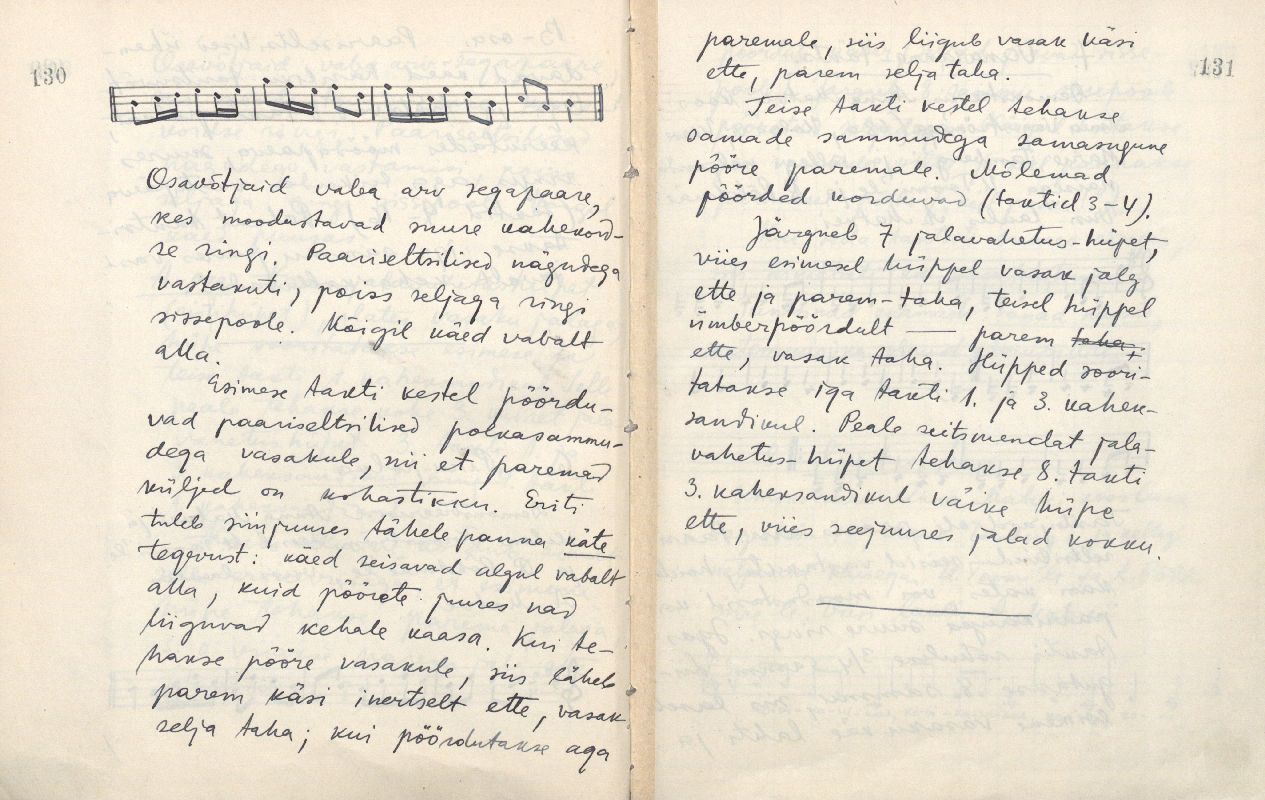 130
Osavõtjaid vaba arv segapaare,
kes moodustavad suure kahekord-
se ringi. Paariseltsilised nägudega
vastakuti, poiss seljaga ringi
sissepoole. Kõigil käed vabalt
alla.
Esimese takti kestel pöördu-
vad paariseltsilised polkasammu-
dega vasakule, nii et paremad
küljed on kohastikku. Eriti
tuleb siinjuures tähele panna käte
tegevust: käed seisavad algul vabalt
alla, kuid pöörete juures nad
liiguvad kehale kaasa. Kui te-
hakse pööre vasakule, siis läheb
parem käsi inertselt ette, vasak
selja taha; kui pöördutakse aga
131
paremale, siis liigub vasak käsi
ette, parem selja taha.
Teise takti kestel tehakse
samade sammudega samasugune
pööre paremale. Mõlemad
pöörded korduvad (taktid 3-4).
Järgneb 7 jalavahetus-hüpet,
viies esimesel hüppel vasak jalg
ette ja parem-taha, teisel hüppel
ümberpöördult — parem taha
ette, vasak taha. Hüpped soori-
tatakse iga takti 1. ja 3. kahek-
sandikul. Peale seitsmendat jala-
vahetus-hüpet tehakse 8. takti
3. kaheksandikul väike hüpe
ette, viies seejuures jalad kokku.